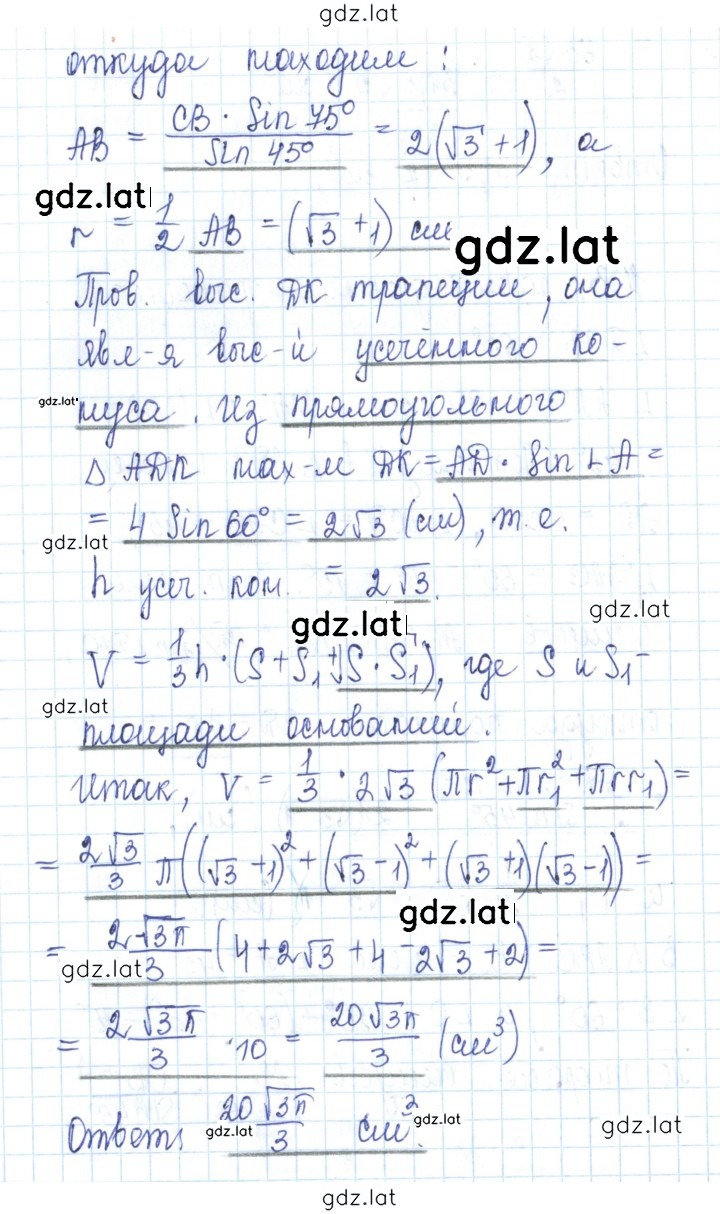 gdz.lat
откуда находим:
AB = CB · Sin 75° / Sin 45° = 2(√3 + 1), а
gdz.lat
r = 1/2 AB = (√3 + 1) см
gdz.lat
Пров. выс. ДК трапеции, она
явл-я выс-й усечённого ко-
gdz.lat
нуса. Из прямоугольного
Δ АДК нах-м ДК = АД · Sin ∟A =
= 4 Sin 60° = 2√3 (см), т.е.
gdz.lat
h усеч. кон. = 2√3.
gdz.lat
gdz.lat
V = 1/3 h · (S + S₁ + √S · S₁), где S и S₁ -
gdz.lat
площади оснований.
Итак, V = 1/3 · 2√3 (πr² + πr₁² + πrr₁) =
= 2√3/3 π((√3 + 1)² + (√3 - 1)² + (√3 + 1)(√3 - 1)) =
gdz.lat
= 2√3π/3 (4 + 2√3 + 4 - 2√3 + 2) =
gdz.lat
= 2√3π/3 · 10 = 20√3π/3 (см³)
Ответ: 20√3π/3 см³.
gdz.lat
gdz.lat
gdz.lat
gdz.lat